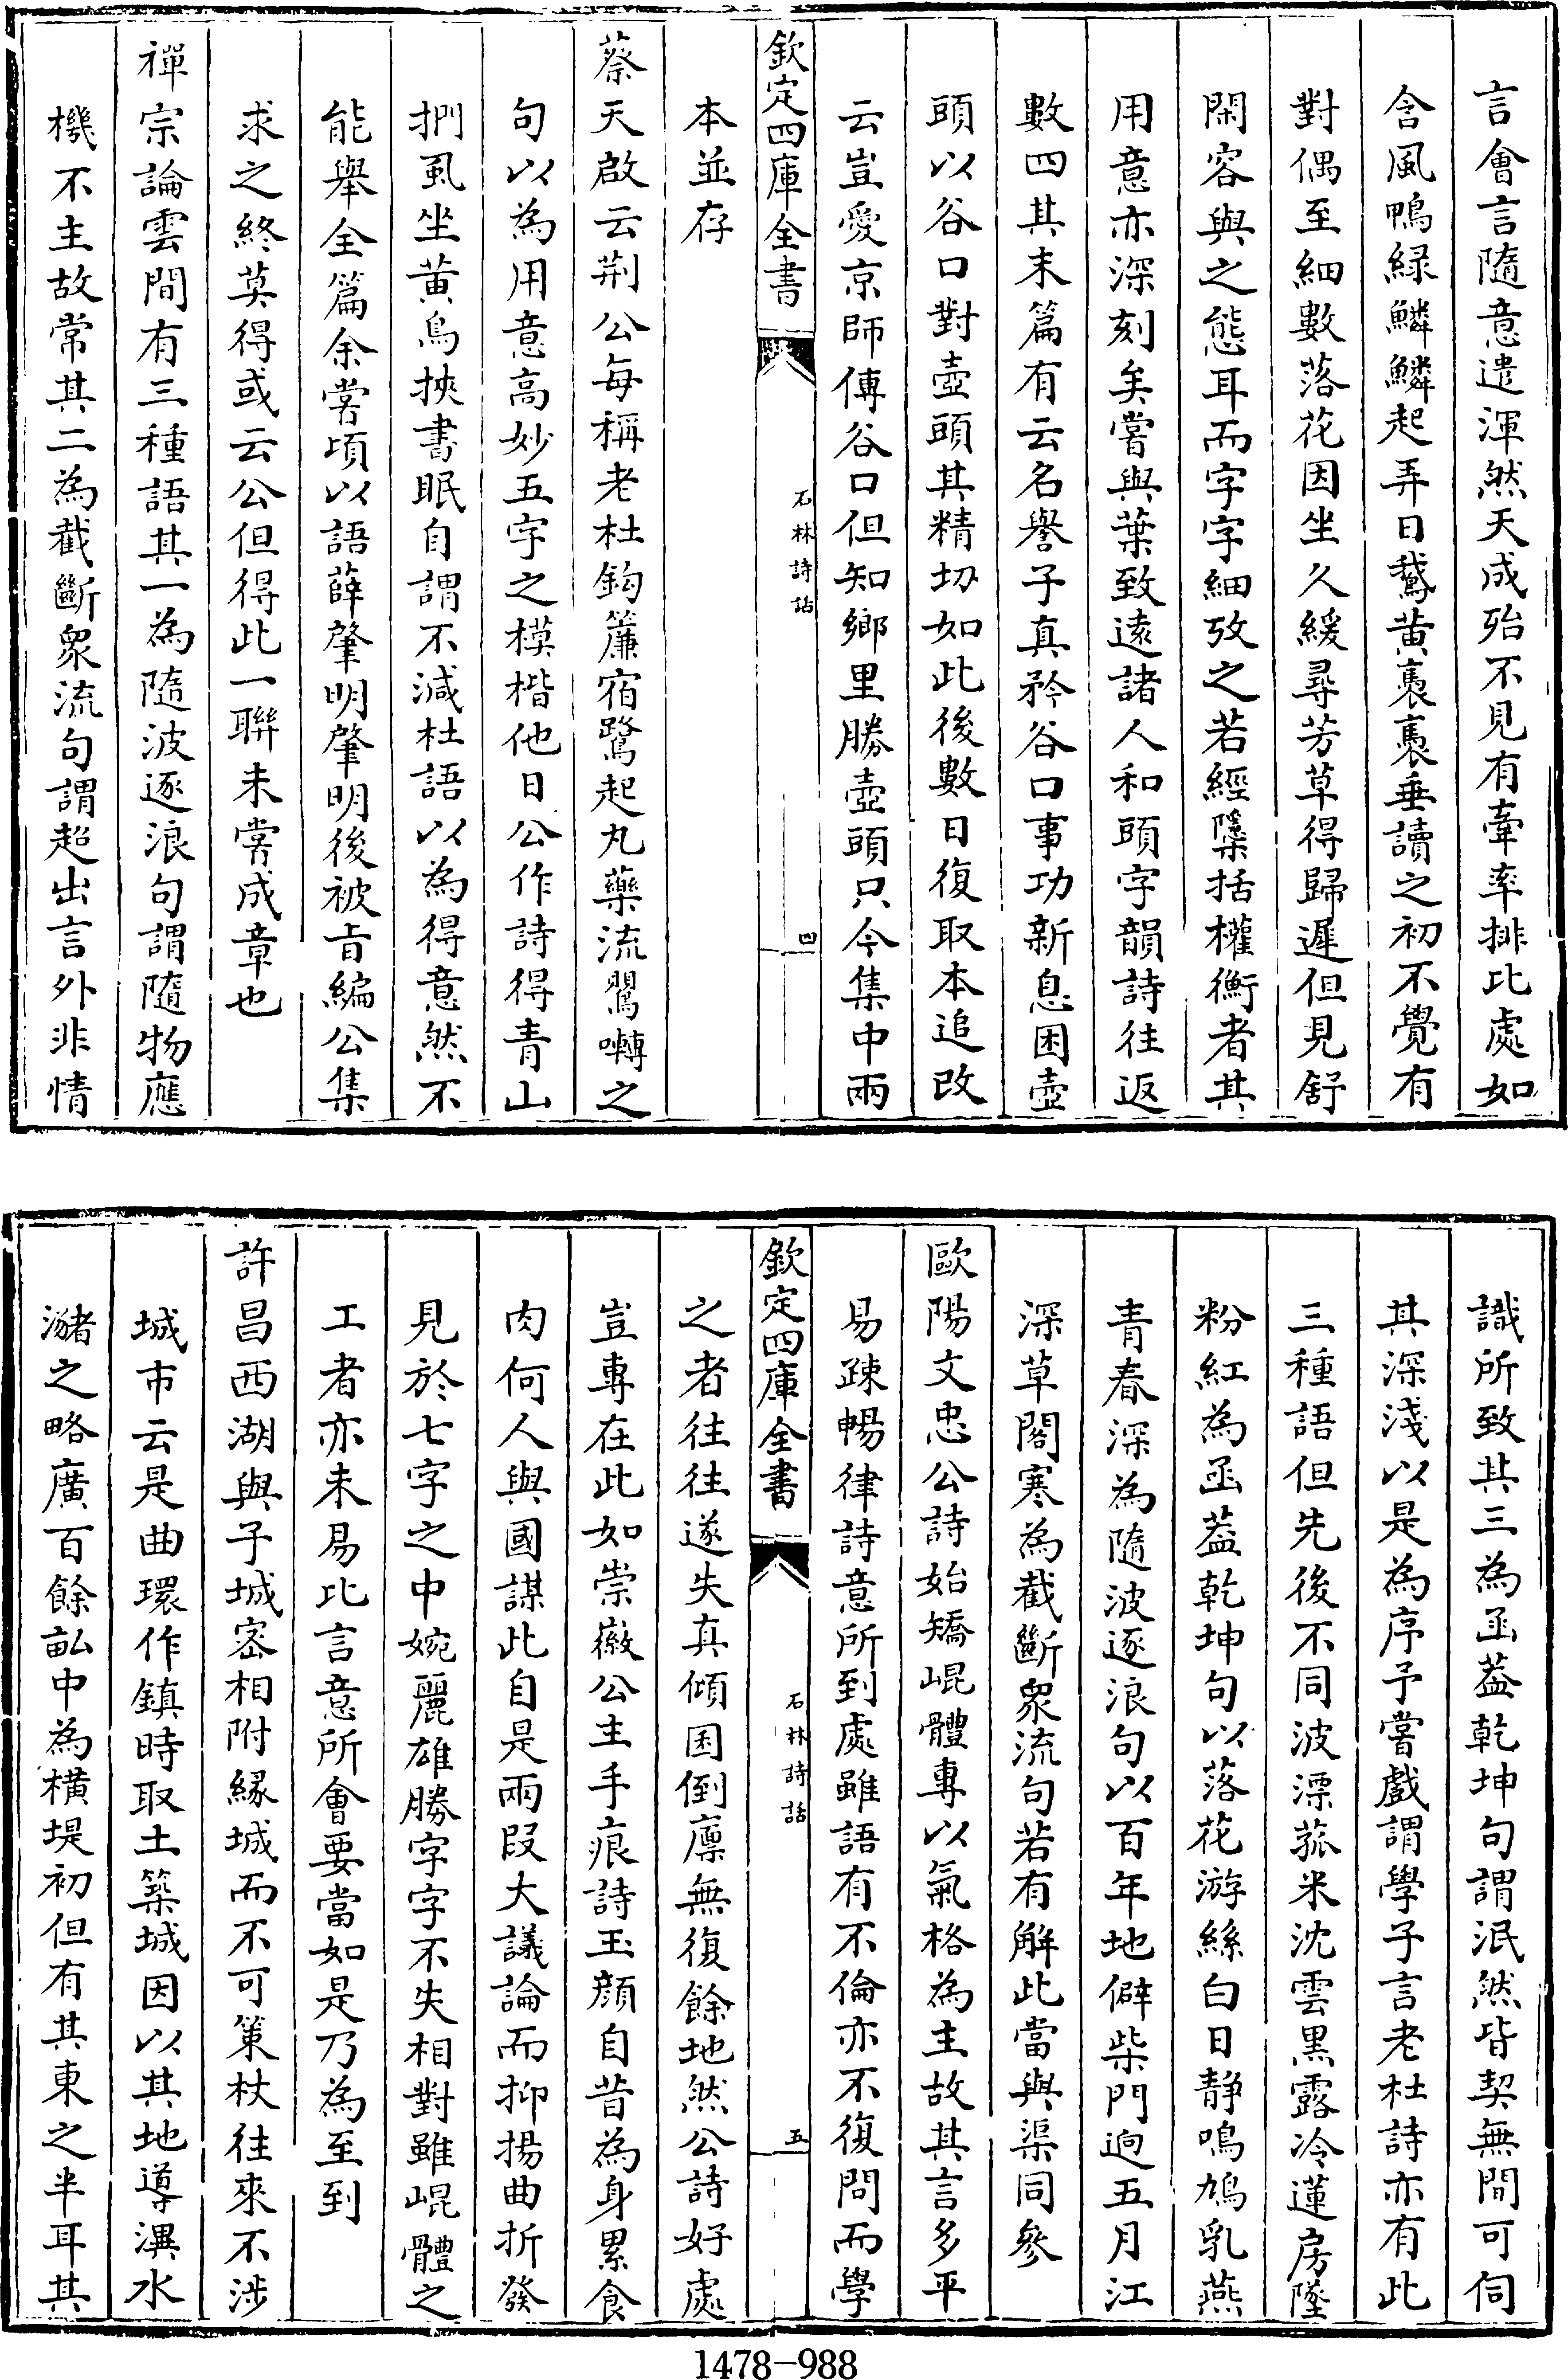 言會言隨意遣渾然天成殆不見有牽率排比處如
含風鴨緑鱗鱗起弄日鵞黄裊裊垂讀之初不覺有
對偶至細數落花因坐久緩尋芳草得歸遲但見舒
閑容與之態耳而字字細攷之若經檃括權衡者其
用意亦深刻矣嘗與葉致逺諸人和頭字韻詩往返
數四其末篇有云名譽子真矜谷口事功新息困壺
頭以谷口對壺頭其精切如此後數日復取本追改
云豈愛京師傳谷口但知鄉里勝壺頭只今集中兩
欽定四庫全書
石林詩話
四
本並存
蔡天啟云荆公每稱老杜鈎簾宿鷺起丸藥流鸎囀之
句以為用意高妙五字之模楷他日公作詩得青山
捫虱坐黄鳥挾書眠自謂不減杜語以為得意然不
能舉全篇余嘗頃以語薛肇明肇明後被㫖編公集
求之終莫得或云公但得此一聯未嘗成章也
禪宗論雲間有三種語其一為隨波逐浪句謂隨物應
機不主故常其二為截斷衆流句謂超出言外非情
識所致其三為函葢乾坤句謂泯然皆契無間可伺
其深淺以是為序予嘗戲謂學子言老杜詩亦有此
三種語但先後不同波漂菰米沈雲黒露冷蓮房墜
粉紅為函葢乾坤句以落花游絲白日静鳴鳩乳燕
青春深為隨波逐浪句以百年地僻柴門逈五月江
深草閣寒為截斷衆流句若有解此當與渠同參
歐陽文忠公詩始矯崐體專以氣格為主故其言多平
易疎暢律詩意所到處雖語有不倫亦不復問而學
欽定四庫全書
石林詩話
五
之者往往遂失真傾囷倒廩無復餘地然公詩好處
豈專在此如崇徽公主手痕詩玉顔自昔為身累食
肉何人與國謀此自是兩叚大議論而抑揚曲折發
見於七字之中婉麗雄勝字字不失相對雖崐體之
工者亦未易比言意所會要當如是乃為至到
許昌西湖與子城宻相附緣城而不可策杖往來不涉
城市云是曲環作鎮時取土築城因以其地導潩水
瀦之略廣百餘畝中為横堤初但有其東之半耳其
1478-988